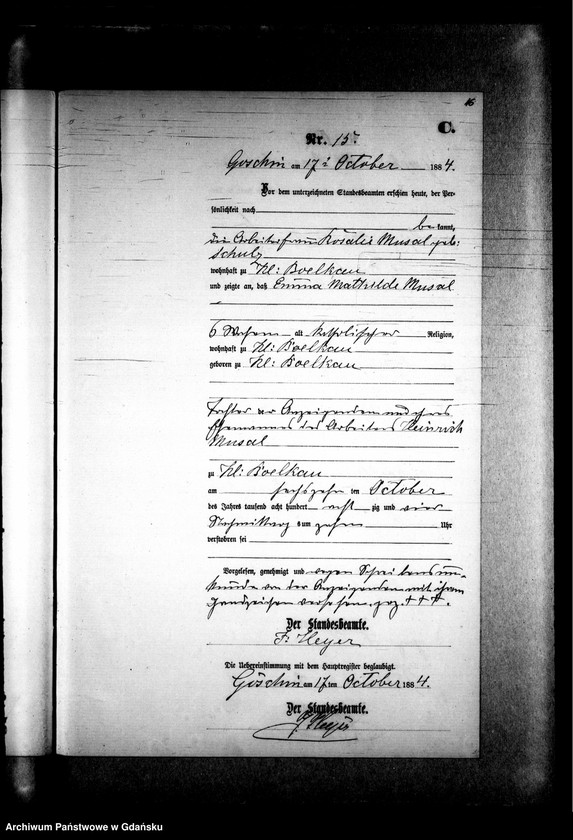 16
C.
Nr. 15.
Goschin am 17ten October 1884.
Vor dem unterzeichneten Standesbeamten erschien heute, der Per-
sönlichkeit nach
bekannt,
die Arbeiterfrau Rosalie Musal geb:
Schulz
wohnhaft zu Kl: Boelkau
und zeigte an, daß Emma Mathilde Musal
6 Wochen alt katholischer Religion,
wohnhaft zu Kl: Boelkau
geboren zu Kl: Boelkau
Tochter der Anzeigenden und ihres
Ehemannes des Arbeiters Heinrich
Musal
zu Kl: Boelkau
am sechszehnten October
des Jahres tausend acht hundert achtzig und vier
Nachmittags um zehn Uhr
verstorben sei
Vorgelesen, genehmigt und wegen Schreibensun-
kunde von der Anzeigenden mit ihrem
Handzeichen versehen. gez. +++.
Der Standesbeamte.
F. Heyer
Die Uebereinstimmung mit dem Hauptregister beglaubigt.
Göschin am 17ten October 1884.
Der Standesbeamte.
F. Heyer
Archiwum Państwowe w Gdańsku